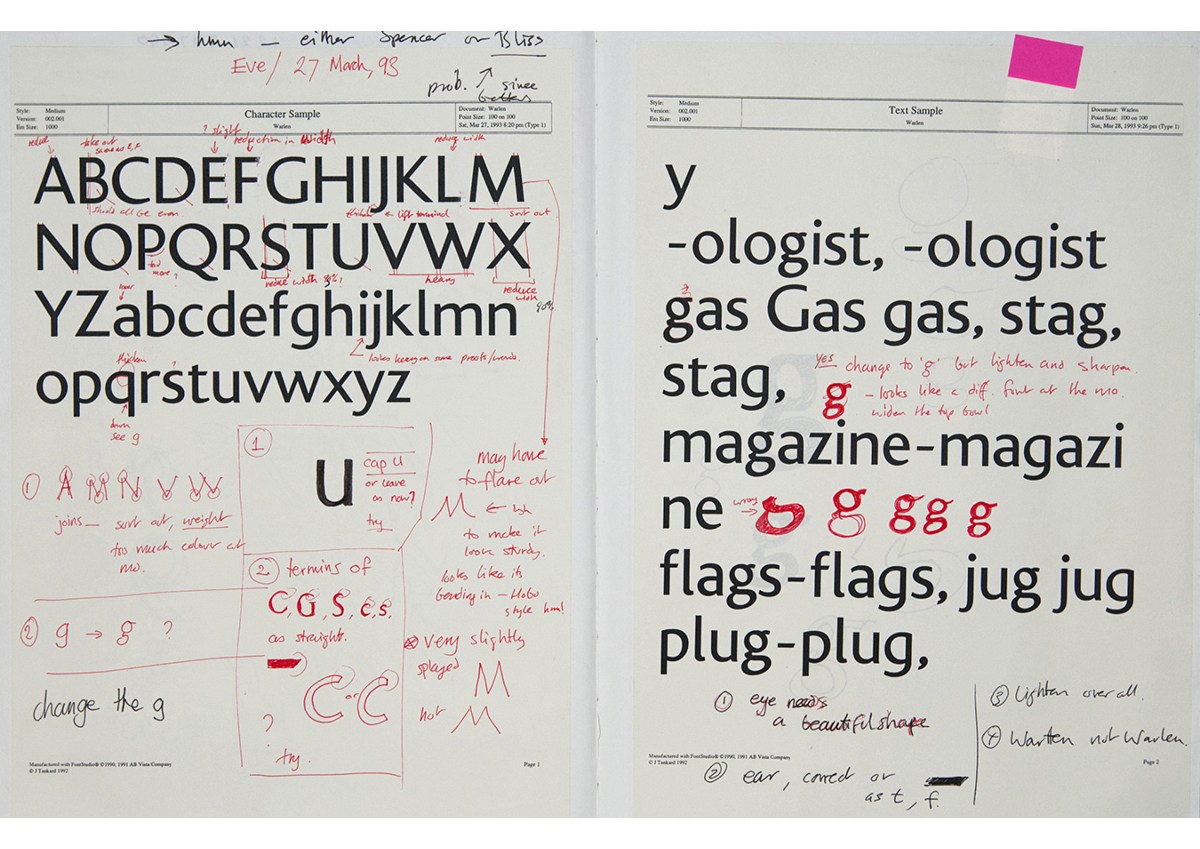 → hmn – either Spencer or Bliss
Eve / 27 March, 93
prob. ↗ since
Style: Medium
Version: 002.001
Em Size: 1000
Character Sample
Warlen
Document: Warlen
Point Size: 100 on 100
Sat, Mar 27, 1993 8:20 pm (Type 1)
reduce
take out
? slight
reduction in width
reduce width
ABCDEFGHIJKLM
should all be even
thicken on left terminal
sort out
NOPQRSTUVWX
too
more?
reduce width
heavy
reduce
width
90%
YZabcdefghijklmn
looks heavy on some proofs/words.
thicken
opqrstuvwxyz
down
see g
① A M N V W
joins – sort out, weight
too much colour at
mo.
② g → g ?
change the g
①
u
cap U
or leave
as now?
try
② termins of
C, G, S, c, s,
as straight.
C or C
?
try.
may have
to flare out
M ←
to make it
look sturdy.
looks like its
bending in – HoBo
style hm!
very slightly
splayed
M
not M
Manufactured with FontStudio® ©1990, 1991 AB Vista Company
© J Tankard 1992
Page 1
Style: Medium
Version: 002.001
Em Size: 1000
Text Sample
Warlen
Document: Warlen
Point Size: 100 on 100
Sun, Mar 28, 1993 9:26 pm (Type 1)
y
-ologist, -ologist
gas Gas gas, stag,
yes change to 'g' but lighten and sharpen.
stag, g – looks like a diff. font at the mo.
widen the top bowl
magazine-magazi
ne
wrong → g g g g
flags-flags, jug jug
plug-plug,
① eye needs
a beautiful shape
② ear, correct or
as t, f.
③ lighten over all.
④ Warlten not Warlen.
Manufactured with FontStudio® ©1990, 1991 AB Vista Company
© J Tankard 1992
Page 2